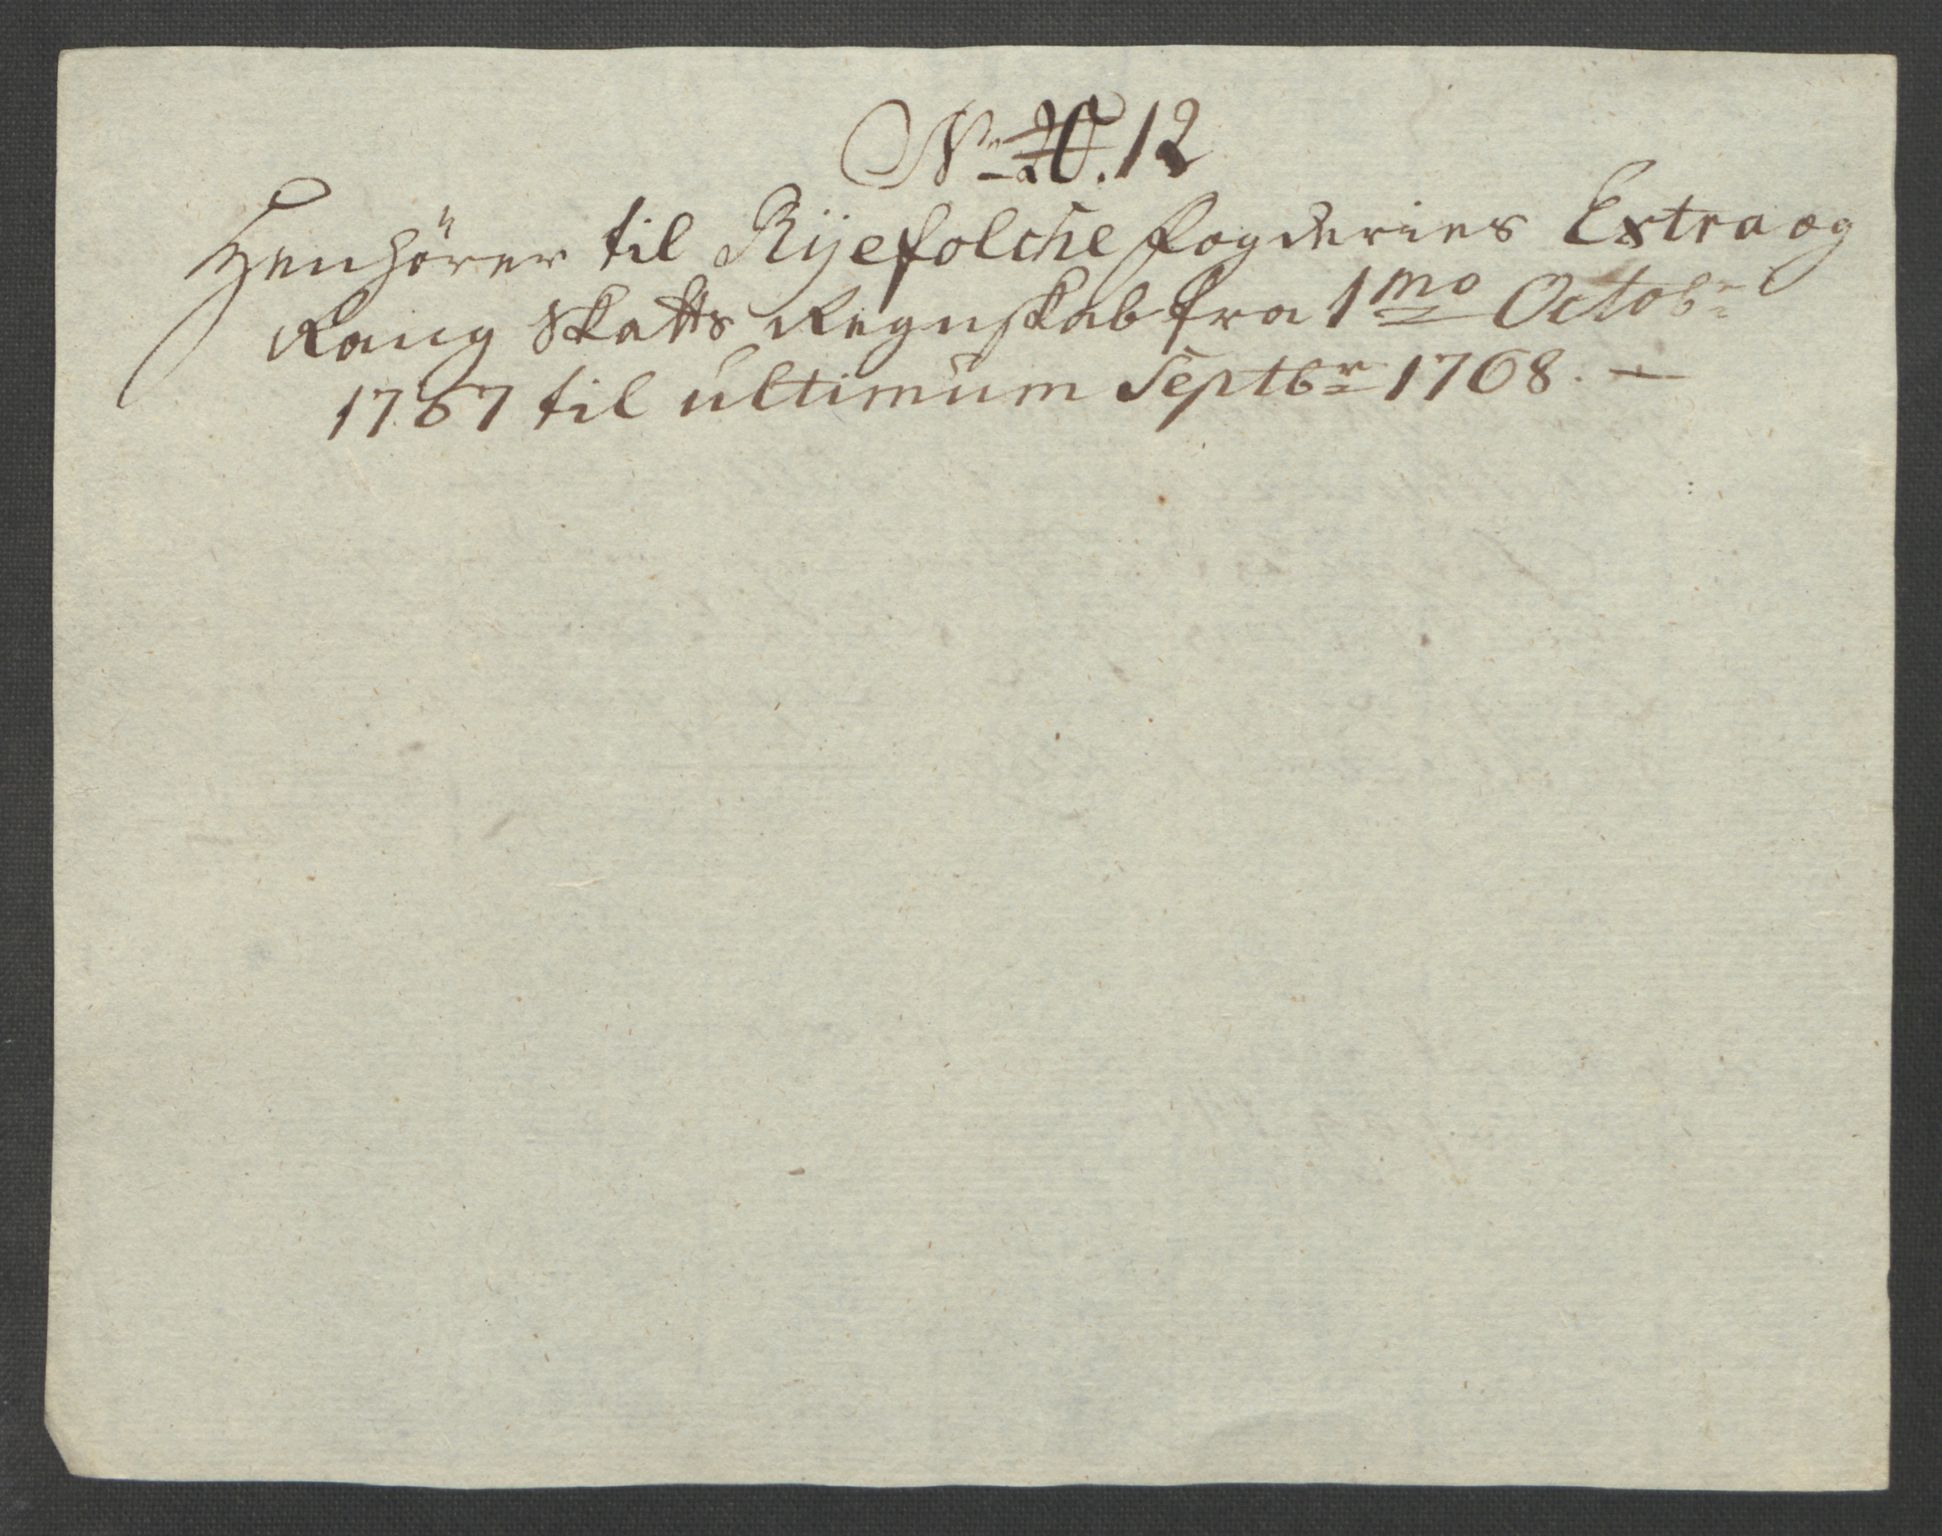 No 12
Henhörer til Rijefolche fogderies Extra og
Rang Skatts Regnskab fra 1mo Octobr
1767 til ultimum Septbr 1768. —